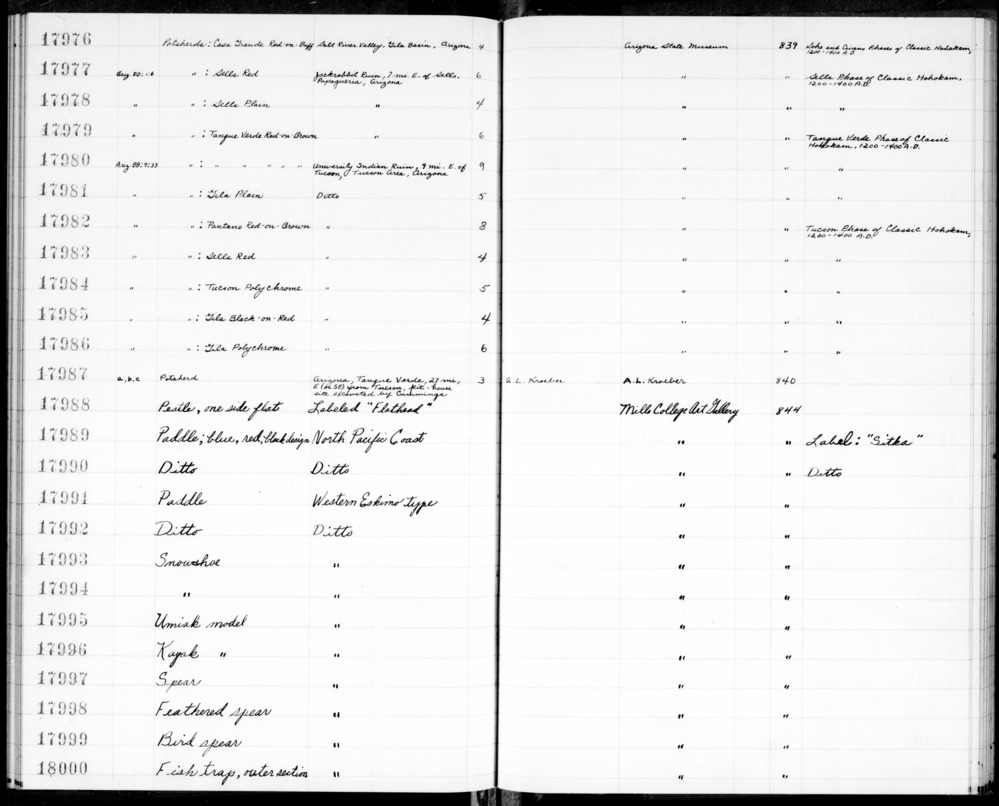 17976 Potsherds: Casa Grande Red-on-Buff Salt River Valley, Gila Basin, Arizona 4 Arizona State Museum 839 Soho and Civano Phases of Classic Hohokam,
1200-1400 A.D.
17977 " : Sells Red Jackrabbit Ruin, 7 mi. E. of Sells, 6 " " Sells Phase of Classic Hohokam,
Papagueria, Arizona 1200-1400 A.D.
17978 " " : Sells Plain " 4 " " "
17979 " " : Tanque Verde Red-on-Brown " 6 " " Tanque Verde Phase of Classic
Hohokam, 1200-1400 A.D.
17980 " : " " " " " University Indian Ruin, 9 mi. E. of 9 " " "
Tucson, Tucson Area, Arizona
17981 " " : Gila Plain Ditto 5 " " "
17982 " " : Pantano Red-on-Brown " 8 " " Tucson Phase of Classic Hohokam,
1200-1400 A.D.
17983 " " : Sells Red " 4 " " "
17984 " " : Tucson Polychrome " 5 " " "
17985 " " : Gila Black-on-Red " 4 " " "
17986 " " : Gila Polychrome " 6 " " "
17987 a,b,c Potsherd Arizona, Tanque Verde, 27 mi, 3 A. L. Kroeber A. L. Kroeber 840
E (or SE) from Tucson, pit-house
site excavated by Cummings
17988 Pestle, one side flat Labeled "Flathead" Mills College Art Gallery 844
17989 Paddle; blue, red, black design North Pacific Coast " " Label: "Sitka"
17990 Ditto Ditto " " Ditto
17991 Paddle Western Eskimo type " "
17992 Ditto Ditto " "
17993 Snowshoe " " "
17994 " " " "
17995 Umiak model " " "
17996 Kayak " " " "
17997 Spear " " "
17998 Feathered spear " " "
17999 Bird spear " " "
18000 Fish trap, outer section " " "